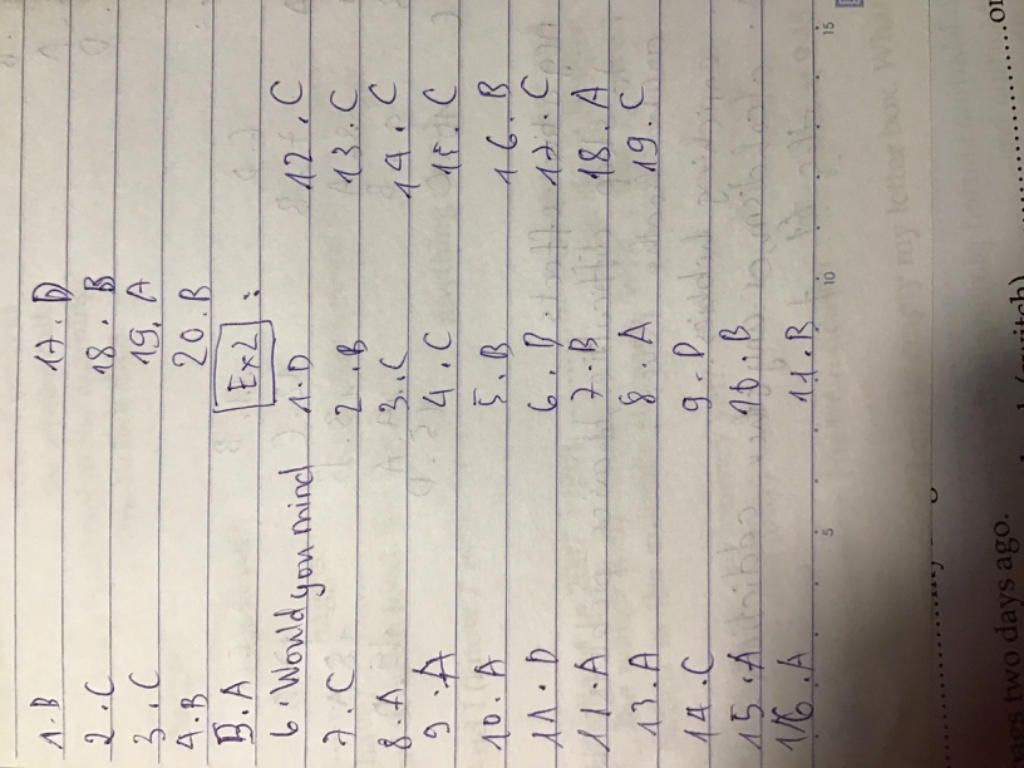 1.B 17.D
2.C 18.B
3.C 19.A
4.B 20.B
5.A Ex2 :
6. Would you mind 1.D 12.C
7.C 2.B 13.C
8.A 3.C 14.C
9.A 4.C 15.C
10.A 5.B 16.B
11.D 6.D 17.C
11.A 7.B 18.A
13.A 8.A 19.C
14.C 9.D
15.A 10.B
16.A 11.B
5 10 15
my letter box
two days ago.